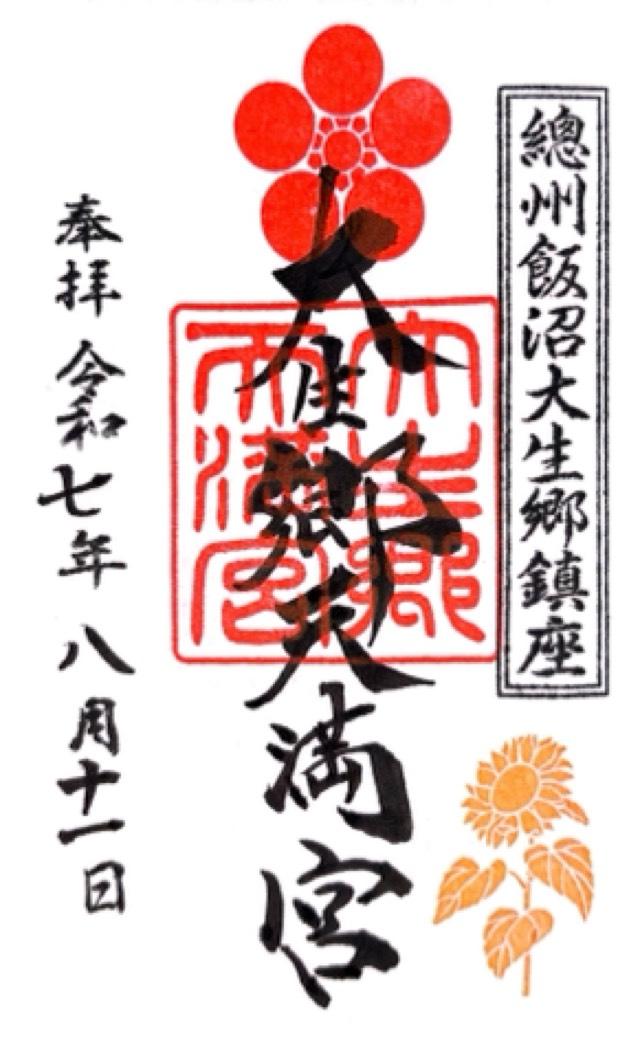 總州飯沼大生郷鎮座
大生郷天満宮
大生郷
天満宮
奉拝 令和七年 八月十一日